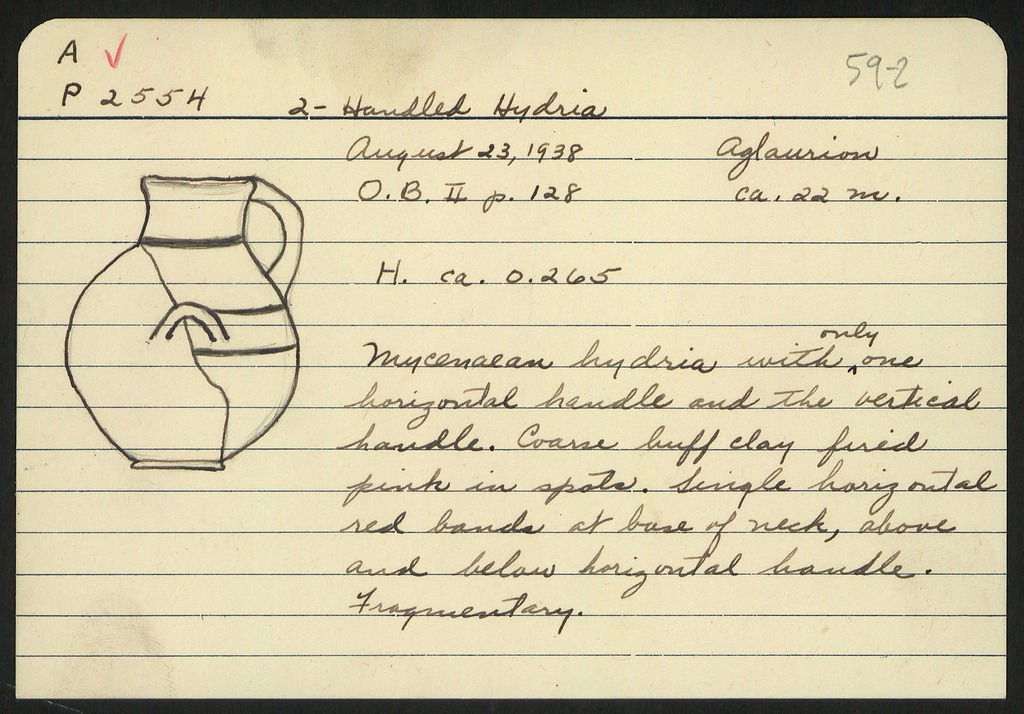 A ✓
59-2
P 2554
2-Handled Hydria
August 23, 1938
Aglaurion
O.B. II p. 128
ca. 22 m.
H. ca. 0.265
Mycenaean hydria with only one
horizontal handle and the vertical
handle. Coarse buff clay fired
pink in spots. Single horizontal
red bands at base of neck, above
and below horizontal handle.
Fragmentary.